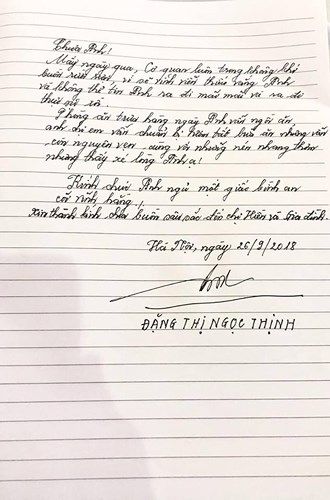 Thưa Anh!
Mấy ngày qua, Cơ quan luôn trong không khí
buồn rười rượi, vì sự vĩnh viễn thiếu vắng Anh
và không thể tin Anh ra đi mãi mãi và ra đi
như giờ rồi.
Phòng ăn trưa hàng ngày Anh vẫn ngồi ăn,
anh chị em vẫn chuẩn bị bữa ăn nhưng vẫn
còn nguyên vẹn cùng với những nén nhang thơm
nhưng thấy xé lòng Anh ạ!
Kính chúc Anh ngủ một giấc bình an
cõi vĩnh hằng!
Xin thành kính chia buồn sâu sắc đến chị Hiền và Gia đình.
Hà Nội, ngày 26/9/2018
ĐẶNG THỊ NGỌC THỊNH